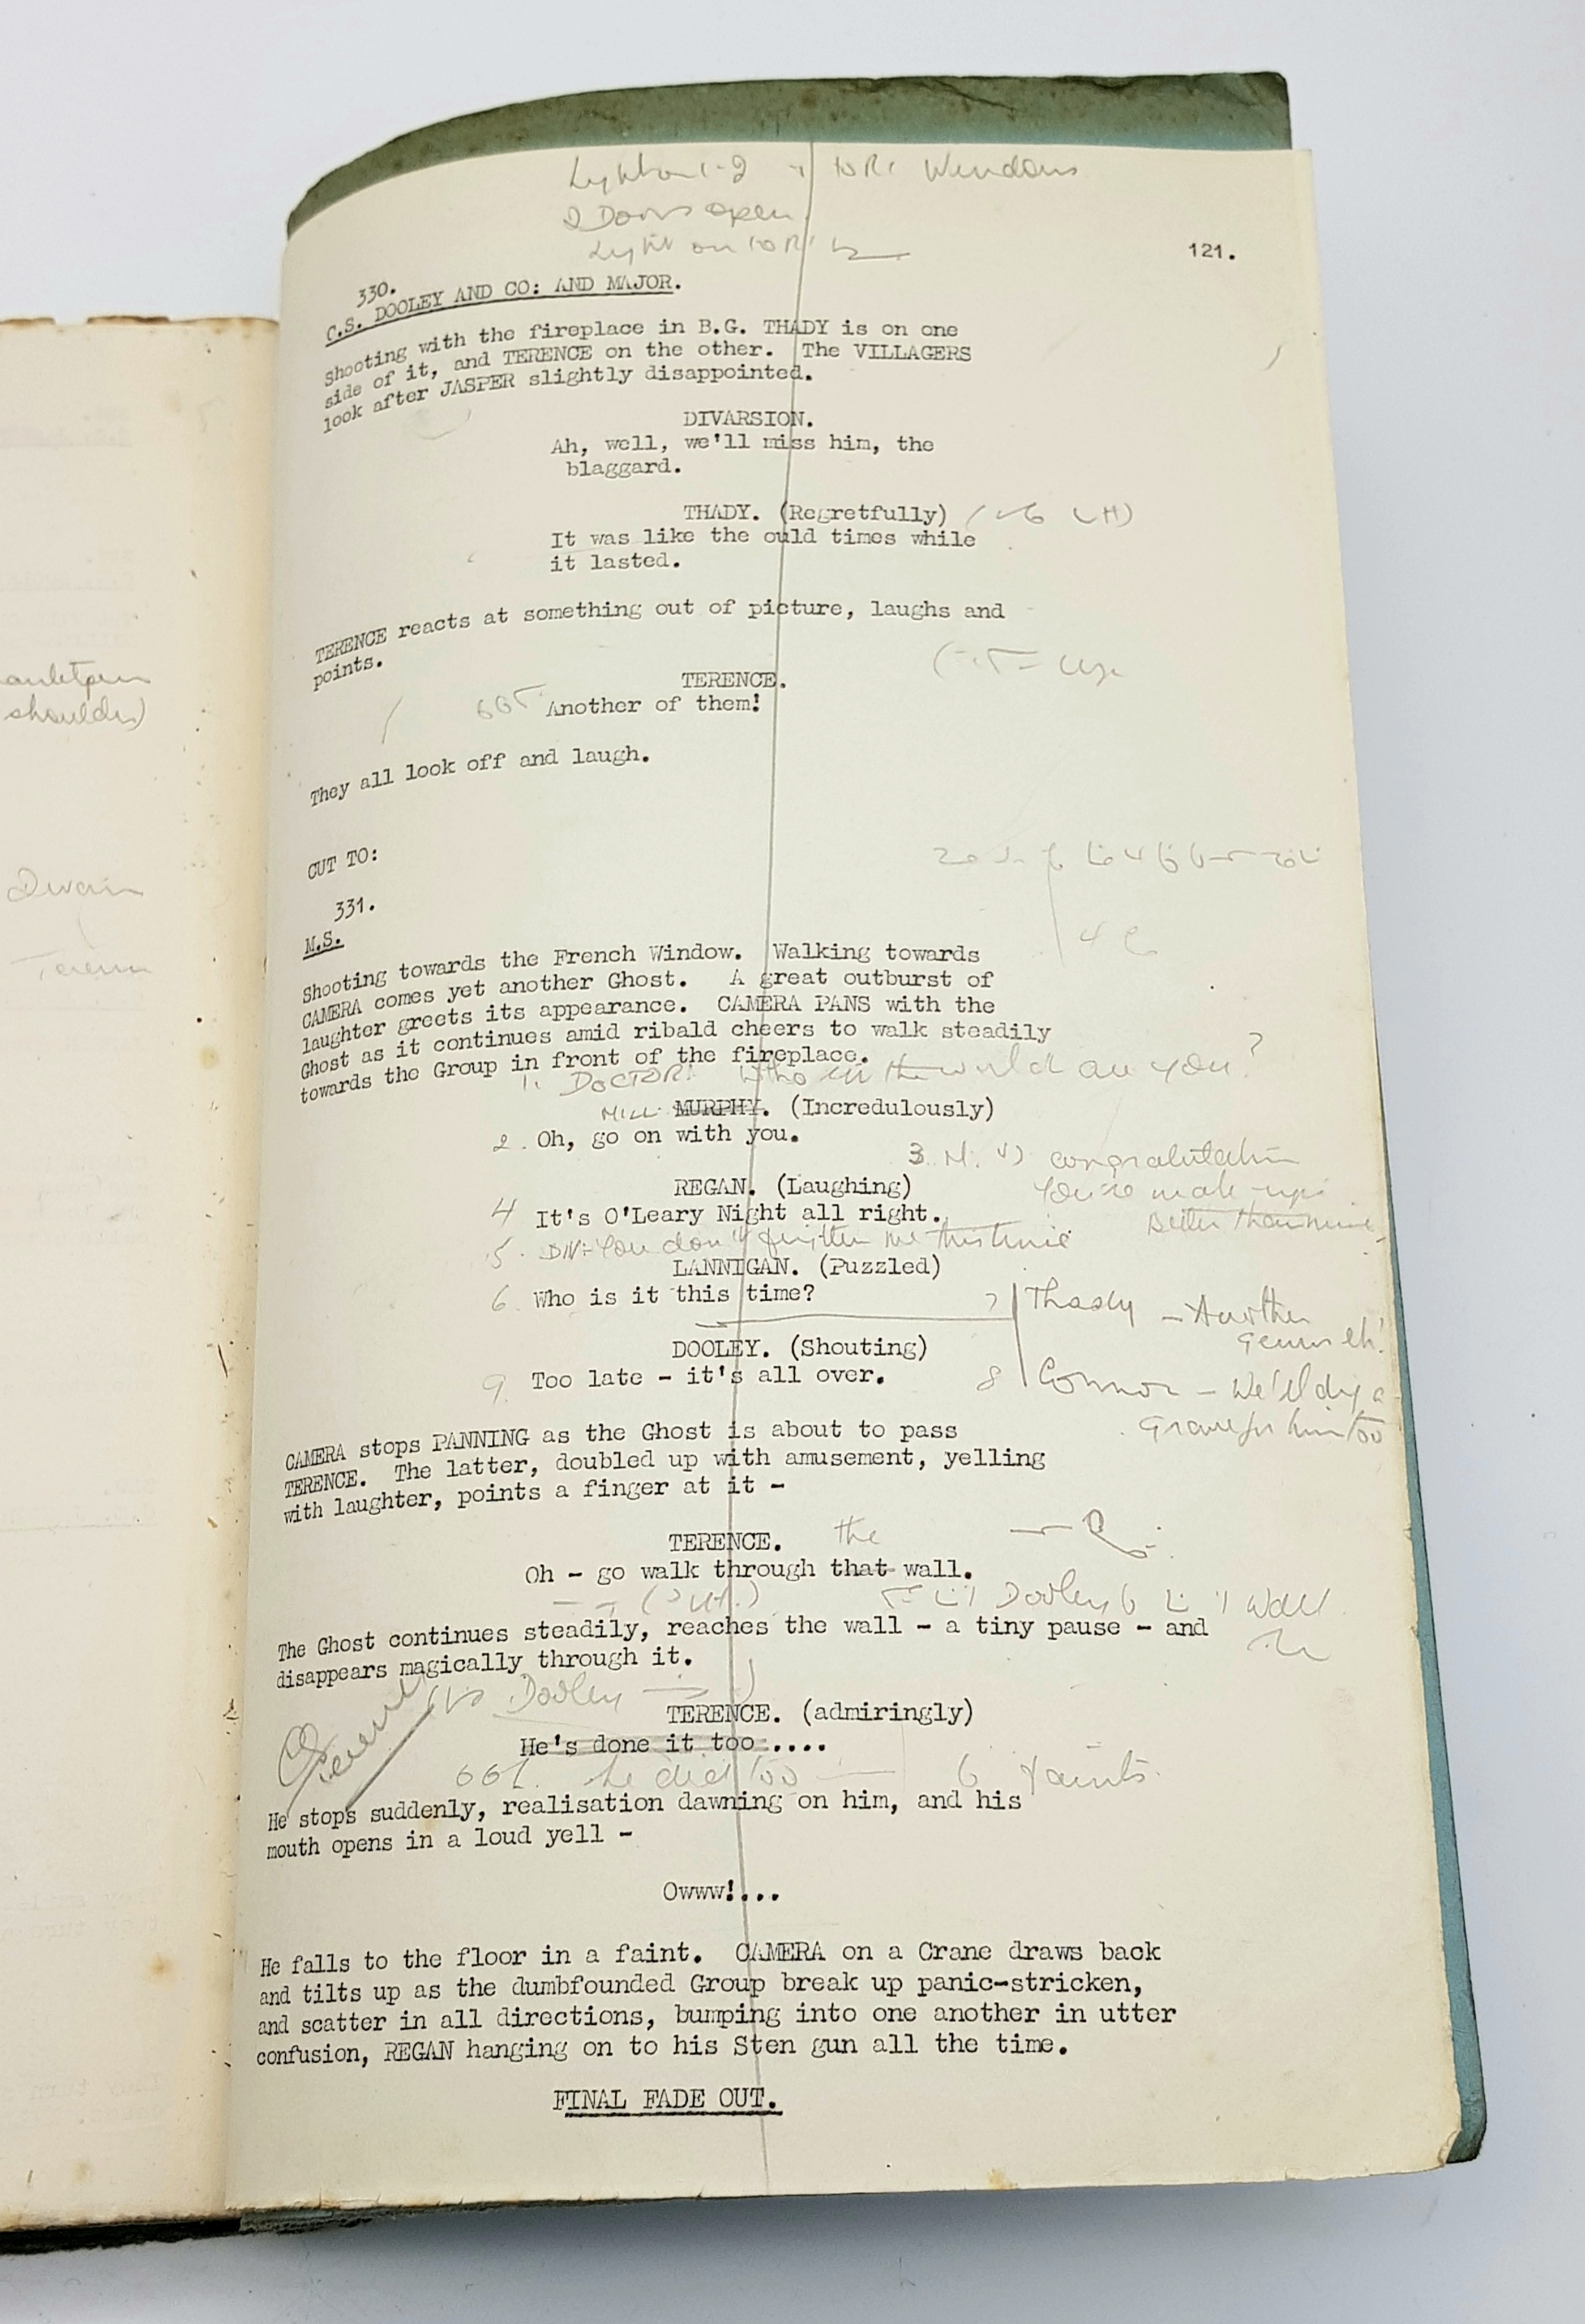 Windows
2 Doors open.
Light on
121.
330.
C.S. DOOLEY AND CO: AND MAJOR.
Shooting with the fireplace in B.G. THADY is on one
side of it, and TERENCE on the other. The VILLAGERS
look after JASPER slightly disappointed.
DIVARSION.
Ah, well, we'll miss him, the
blaggard.
THADY. (Regretfully)
It was like the ould times while
it lasted.
TERENCE reacts at something out of picture, laughs and
points.
shoulder)
TERENCE.
Another of them!
They all look off and laugh.
CUT TO:
331.
M.S.
Shooting towards the French Window. Walking towards
CAMERA comes yet another Ghost. A great outburst of
laughter greets its appearance. CAMERA PANS with the
Ghost as it continues amid ribald cheers to walk steadily
towards the Group in front of the fireplace.
1. DOCTOR: Who in the world are you?
MURPHY. (Incredulously)
2. Oh, go on with you.
3. congratulation
REGAN. (Laughing)
your make-up's
4 It's O'Leary Night all right.
Better than mine
5. DIV: You don't frighten me this time
LANNIGAN. (Puzzled)
6. Who is it this time?
7 Thady - Another
DOOLEY. (Shouting)
9. Too late - it's all over.
8 Connor - We'll dig a
Grave for him too
CAMERA stops PANNING as the Ghost is about to pass
TERENCE. The latter, doubled up with amusement, yelling
with laughter, points a finger at it -
TERENCE. the
Oh - go walk through that wall.
Dooley wall
The Ghost continues steadily, reaches the wall - a tiny pause - and
disappears magically through it.
Dooley
TERENCE. (admiringly)
He's done it too....
he did too faints.
He stops suddenly, realisation dawning on him, and his
mouth opens in a loud yell -
Owww!...
He falls to the floor in a faint. CAMERA on a Crane draws back
and tilts up as the dumbfounded Group break up panic-stricken,
and scatter in all directions, bumping into one another in utter
confusion, REGAN hanging on to his Sten gun all the time.
FINAL FADE OUT.